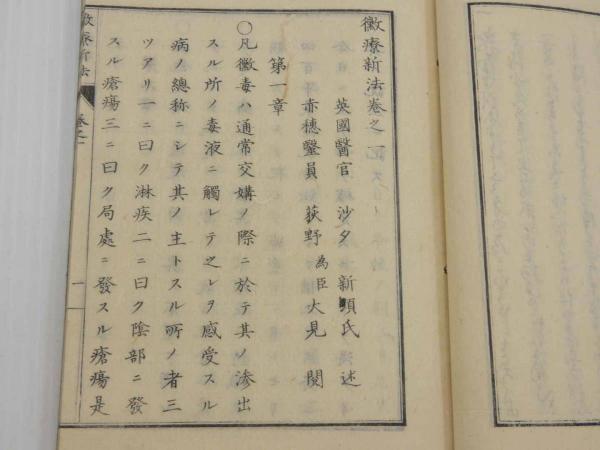 黴療新法卷之一
英國醫官 沙夕 新頓氏 述
赤穂醫員 荻野 為臣 大見 閲
第一章
〇凡黴毒ハ通常交媾ノ際ニ於テ其ノ滲出
スル所ノ毒液ニ觸レテ之レヲ感受スル
病ノ總称ニシテ其ノ主トスル所ノ者三
ツアリ一ニ曰ク淋疾二ニ曰ク陰部ニ發
スル瘡瘍三ニ曰ク局處ニ發スル瘡瘍是
黴療新法 卷之一
一